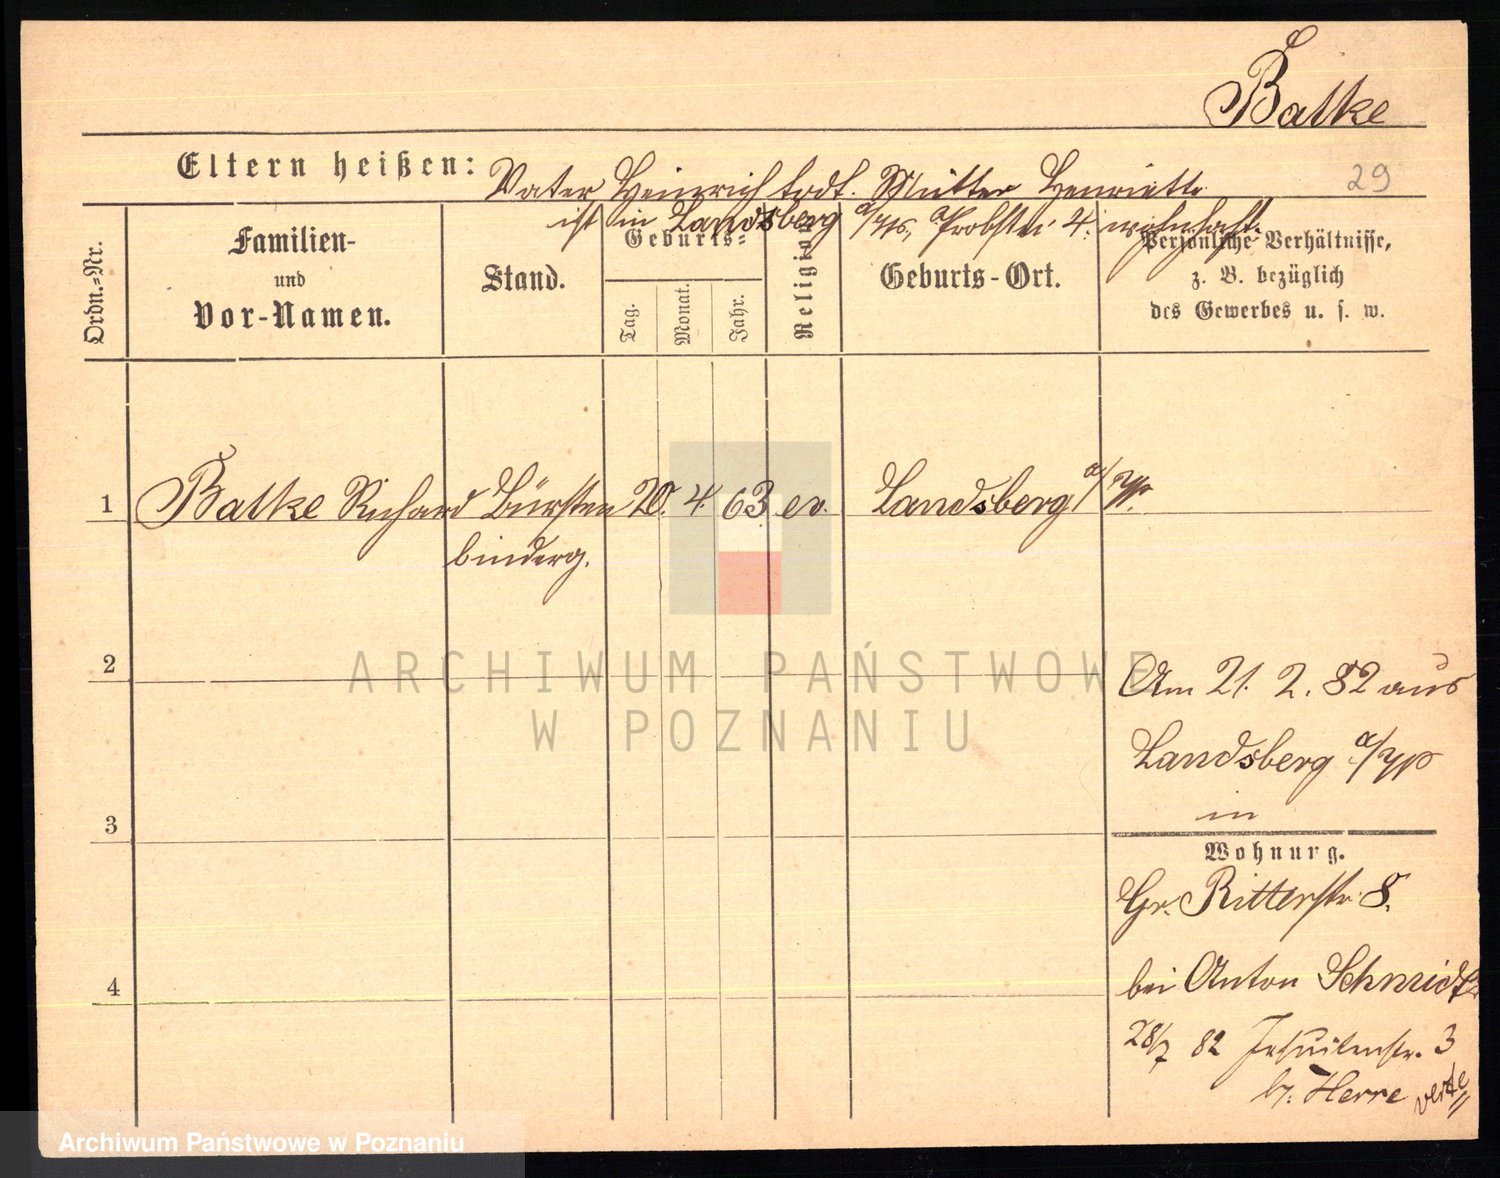 Batke
29
Eltern heißen: Vater Heinrich todt. Mutter Henriette
ist in Landsberg a/W., Probstei 4. wohnhaft.
Ordn.-Nr.
Familien-
und
Vor-Namen.
Stand.
Geburts-
Tag. Monat. Jahr.
Religion
Geburts-Ort.
Persönliche Verhältnisse,
z. B. bezüglich
des Gewerbes u. s. w.
1 Batke Richard Bürsten 20. 4. 63 ev. Landsberg a/W.
binderg.
2
Am 21. 2. 82 aus
Landsberg a/W
in
3
Wohnung.
Gr. Ritterstr. 8.
bei Anton Schmidt
4
28/7 82 Jesuitenstr. 3
b. Herre verte
ARCHIWUM PAŃSTWOWE
W POZNANIU
Archiwum Państwowe w Poznaniu